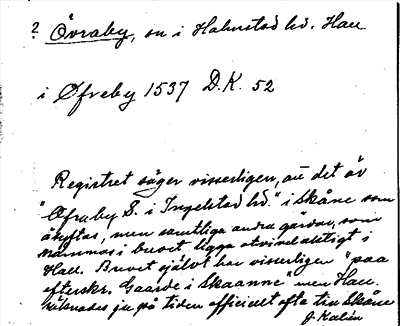 ? Övraby, sn i Halmstad hd. Hall.
i Øfreby 1537 D.K. 52
Registret säger visserligen, att det är
"Øfraby S. i Ingelstad hd." i Skåne som
åsyftas, men samtliga andra gårdar, som
nämnas i brevet ligga otvivelaktigt i
Hall. Brevet självt har visserligen "paa
efterskr. Gaarde i Skaanne" men Hall.
räknades ju på tiden officielt ofta till Skåne
J. Kalén